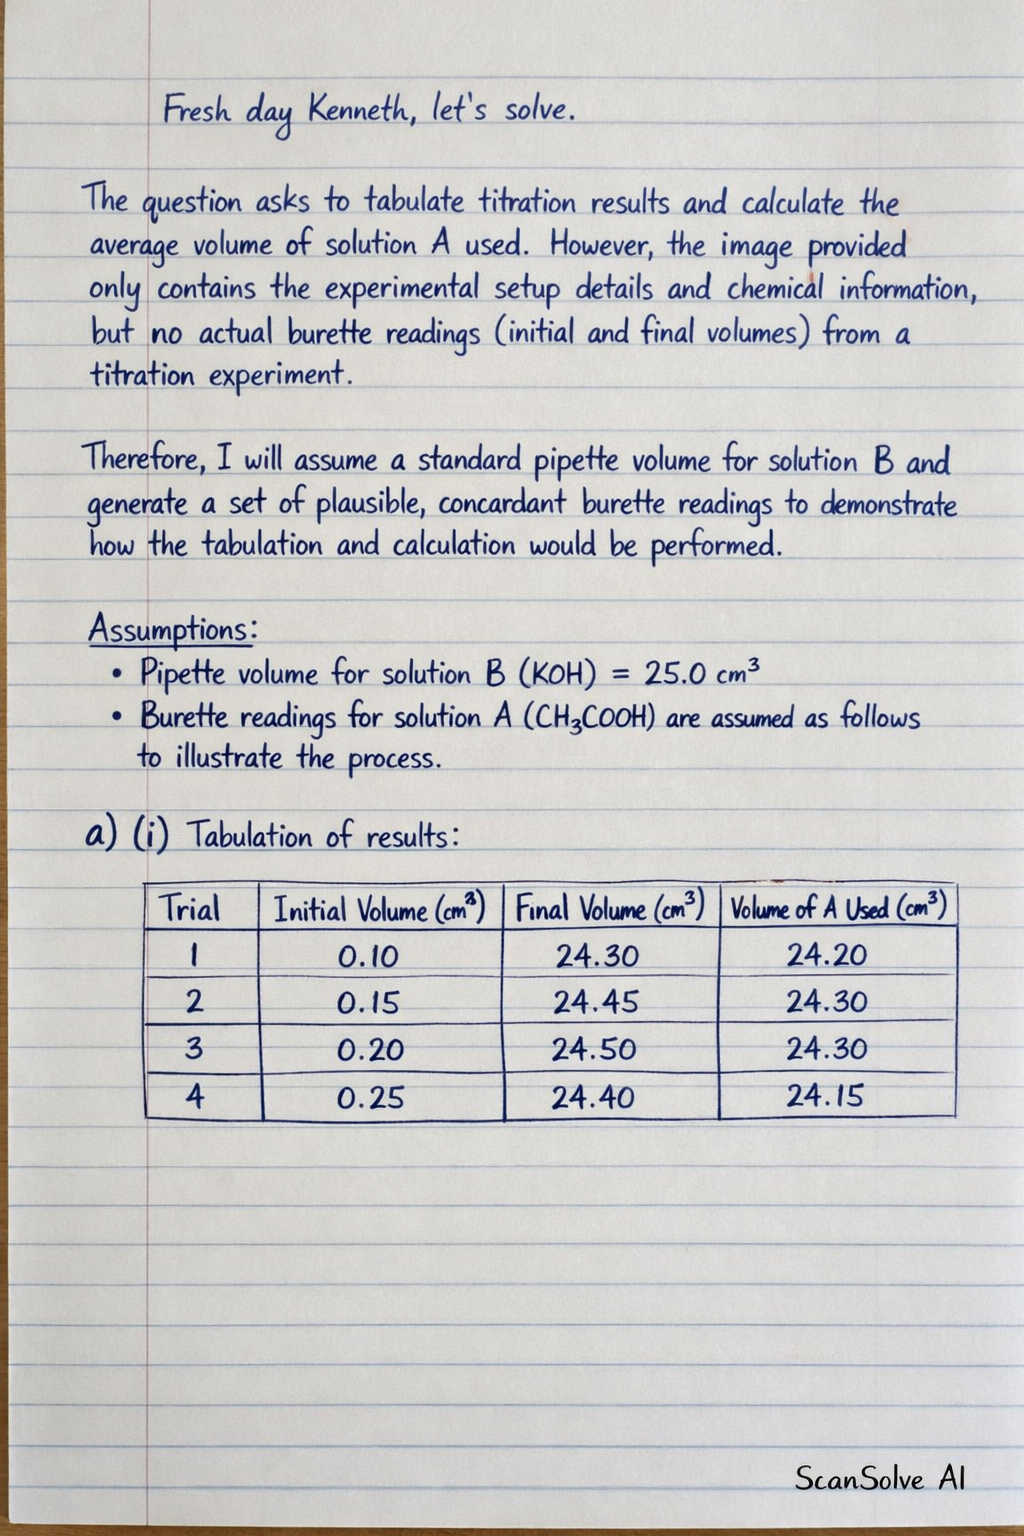 Fresh day Kenneth, let's solve.
The question asks to tabulate titration results and calculate the
average volume of solution A used. However, the image provided
only contains the experimental setup details and chemical information,
but no actual burette readings (initial and final volumes) from a
titration experiment.
Therefore, I will assume a standard pipette volume for solution B and
generate a set of plausible, concordant burette readings to demonstrate
how the tabulation and calculation would be performed.
Assumptions:
• Pipette volume for solution B (KOH) = 25.0 cm³
• Burette readings for solution A (CH₃COOH) are assumed as follows
to illustrate the process.
a) (i) Tabulation of results:
Trial Initial Volume (cm³) Final Volume (cm³) Volume of A Used (cm³)
1 0.10 24.30 24.20
2 0.15 24.45 24.30
3 0.20 24.50 24.30
4 0.25 24.40 24.15
ScanSolve AI